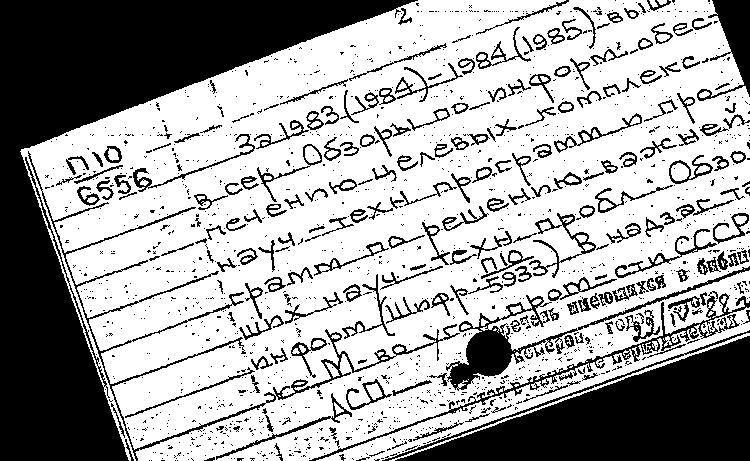 2
За 1983(1984)-1984(1985) выш
П10
6556
в сер.: Обзоры по информ. обес-
печению целевых комплекс.
науч.-техн. программ и про-
грамм по решению важней
ших науч.-техн. пробл. Обзор
информ (Шифр П10/5933) В надзаг. та
же: М-во угол. пром-сти СССР
ДСП.
перечень имеющихся в библи
номеров, годов
смотри в каталоге периодических